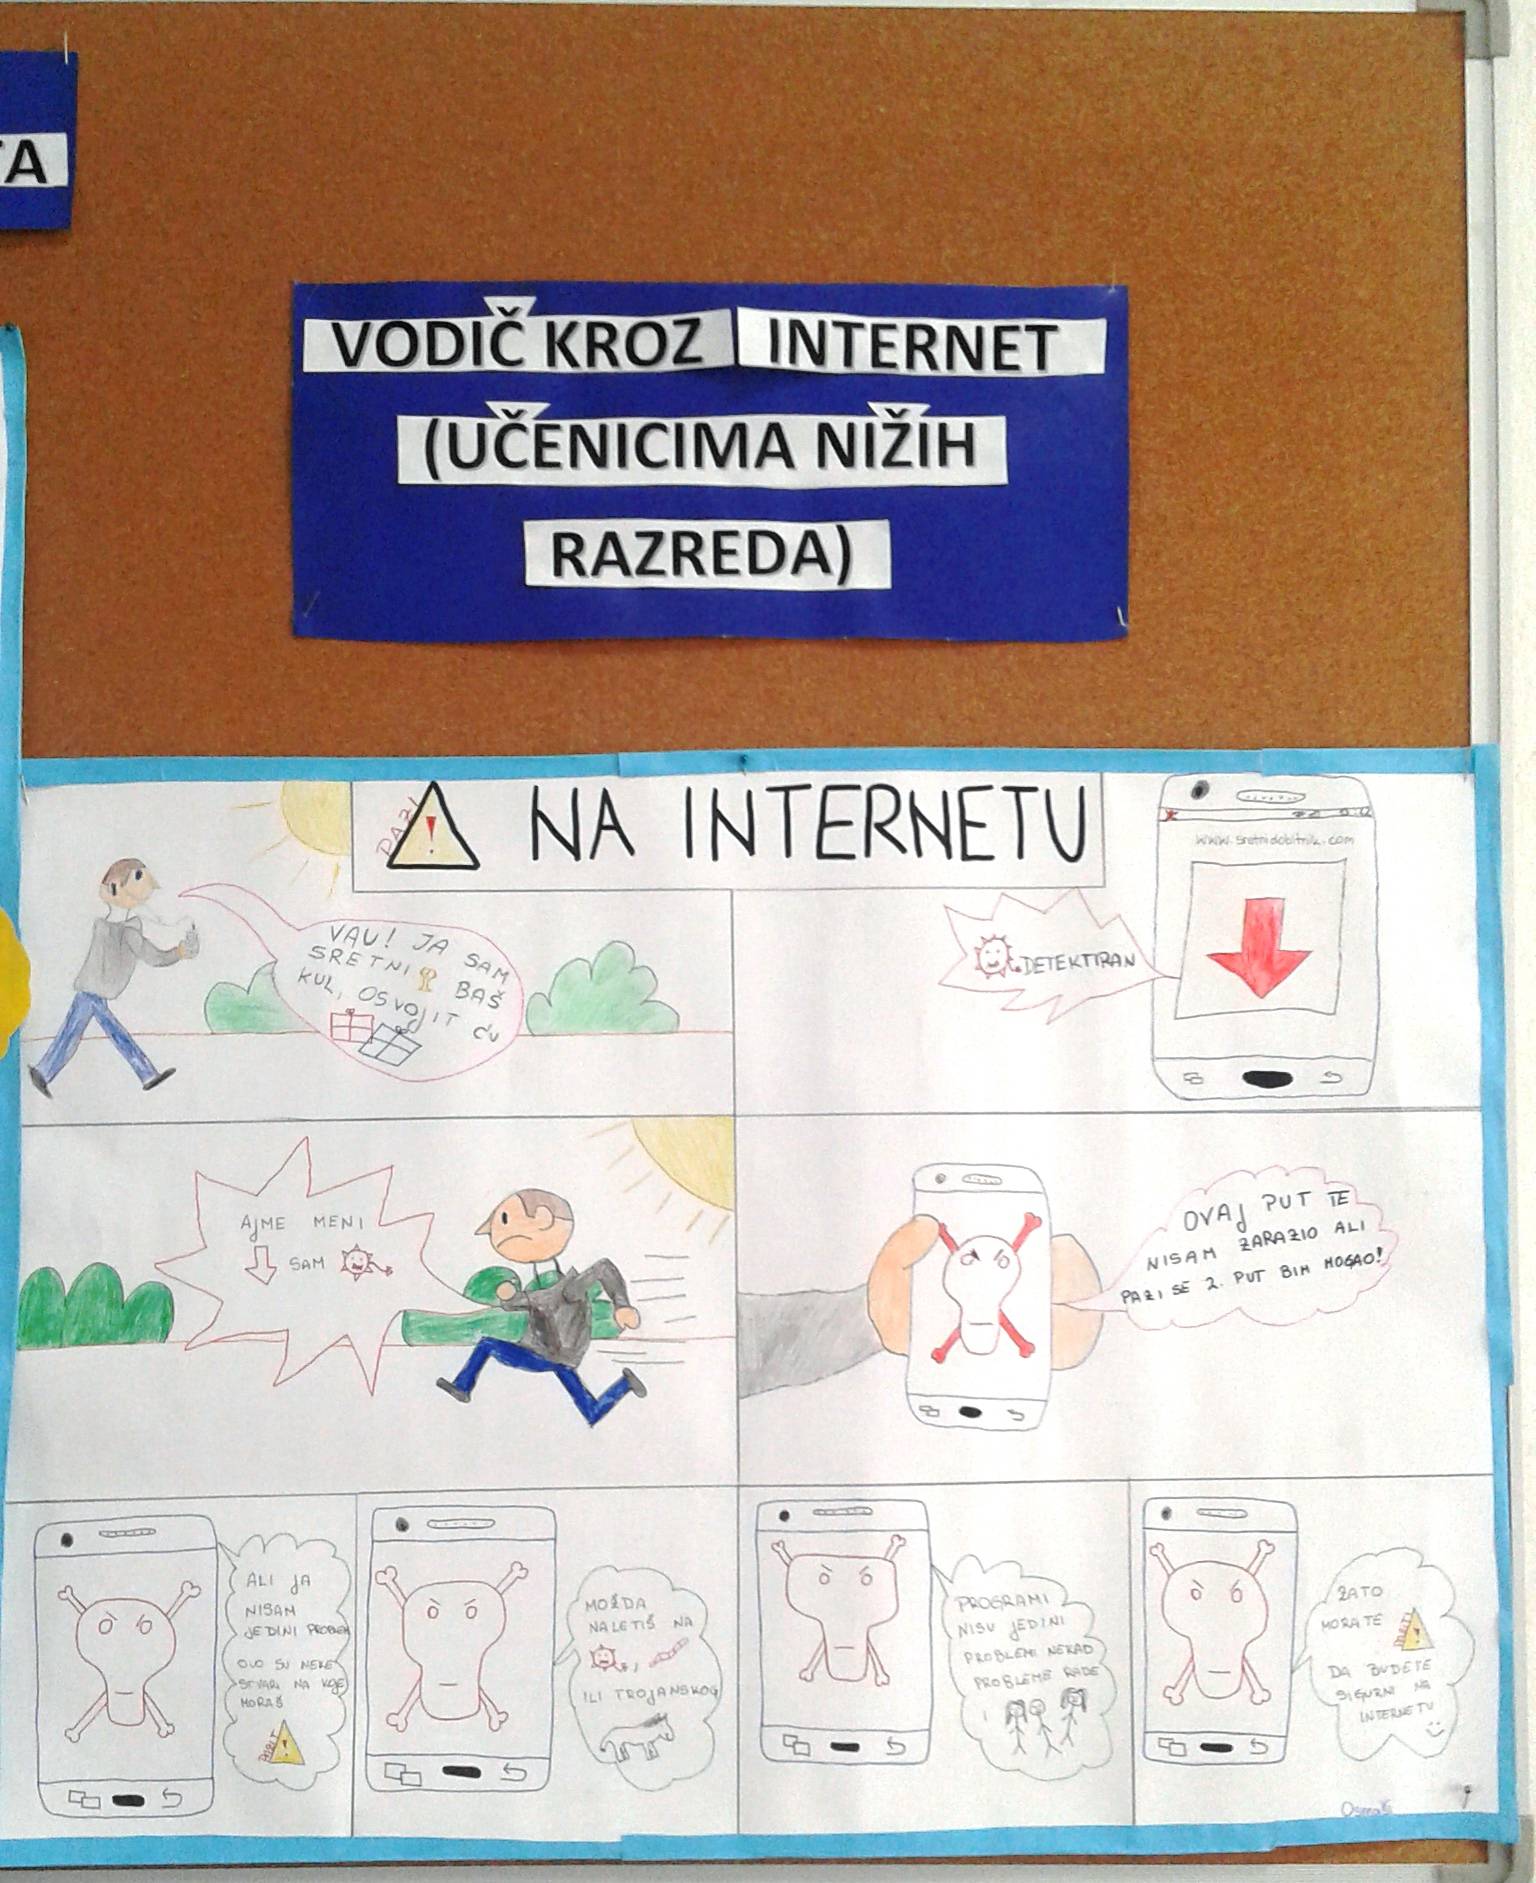 TA
VODIČ KROZ INTERNET
(UČENICIMA NIŽIH
RAZREDA)
PAZI
! NA INTERNETU
VAU! JA SAM
SRETNI BAŠ
KUL, OSVOJIT ĆU
www.sretnidobitnik.com
DETEKTIRAN
AJME MENI
SAM
OVAJ PUT TE
NISAM ZARAZIO ALI
PAZI SE 2. PUT BIH MOGAO!
ALI JA
NISAM
JEDINI PROBLEM
OVO SU NEKE
STVARI NA KOJE
MORAŠ
PAZIT
!
MOŽDA
NALETIŠ NA
,
ILI TROJANSKOG
PROGRAMI
NISU JEDINI
PROBLEMI NEKAD
PROBLEME RADE
I
ZATO
MORATE
!
DA BUDETE
SIGURNI NA
INTERNETU